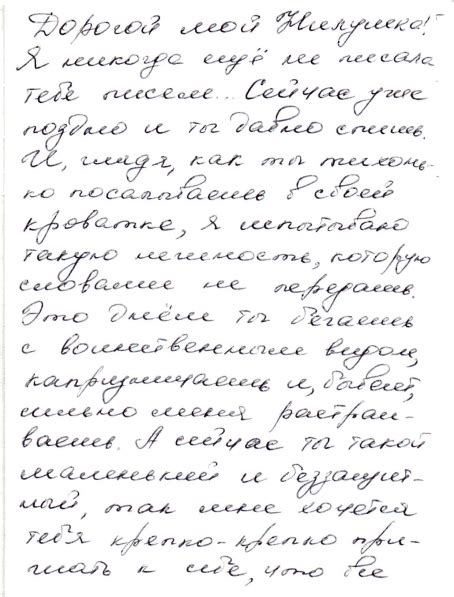 Дорогой мой Никушка!
Я никогда ещё не писала
тебе писем... Сейчас уже
поздно и ты давно спишь.
И, глядя, как ты тихонь-
ко посапываешь в своей
кроватке, я испытываю
такую нежность, которую
словами не передашь.
Это днём ты бегаешь
с воинственным видом,
капризничаешь и, бывает,
сильно меня расстраи-
ваешь. А сейчас ты такой
маленький и беззащит-
ный, так мне хочется
тебя крепко-крепко при-
жать к себе, что все